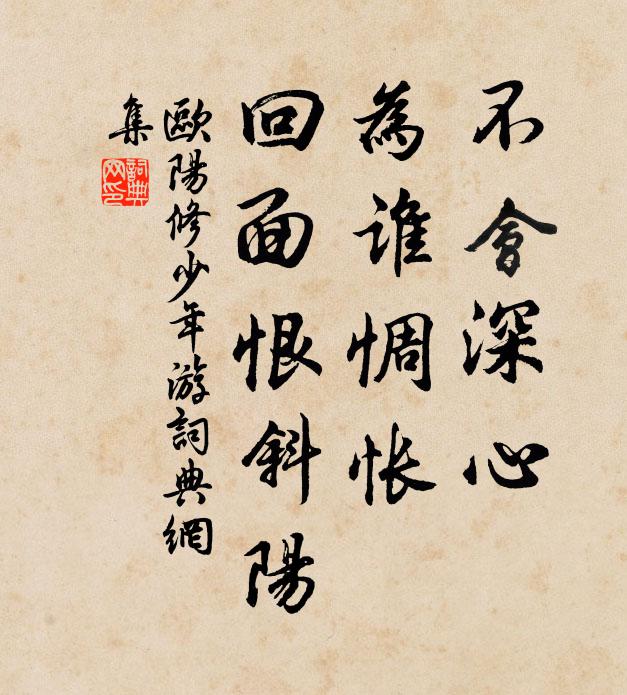 不會深心
為誰惆悵
回面恨斜陽
歐陽修少年游詞典網
集
詞典
网印